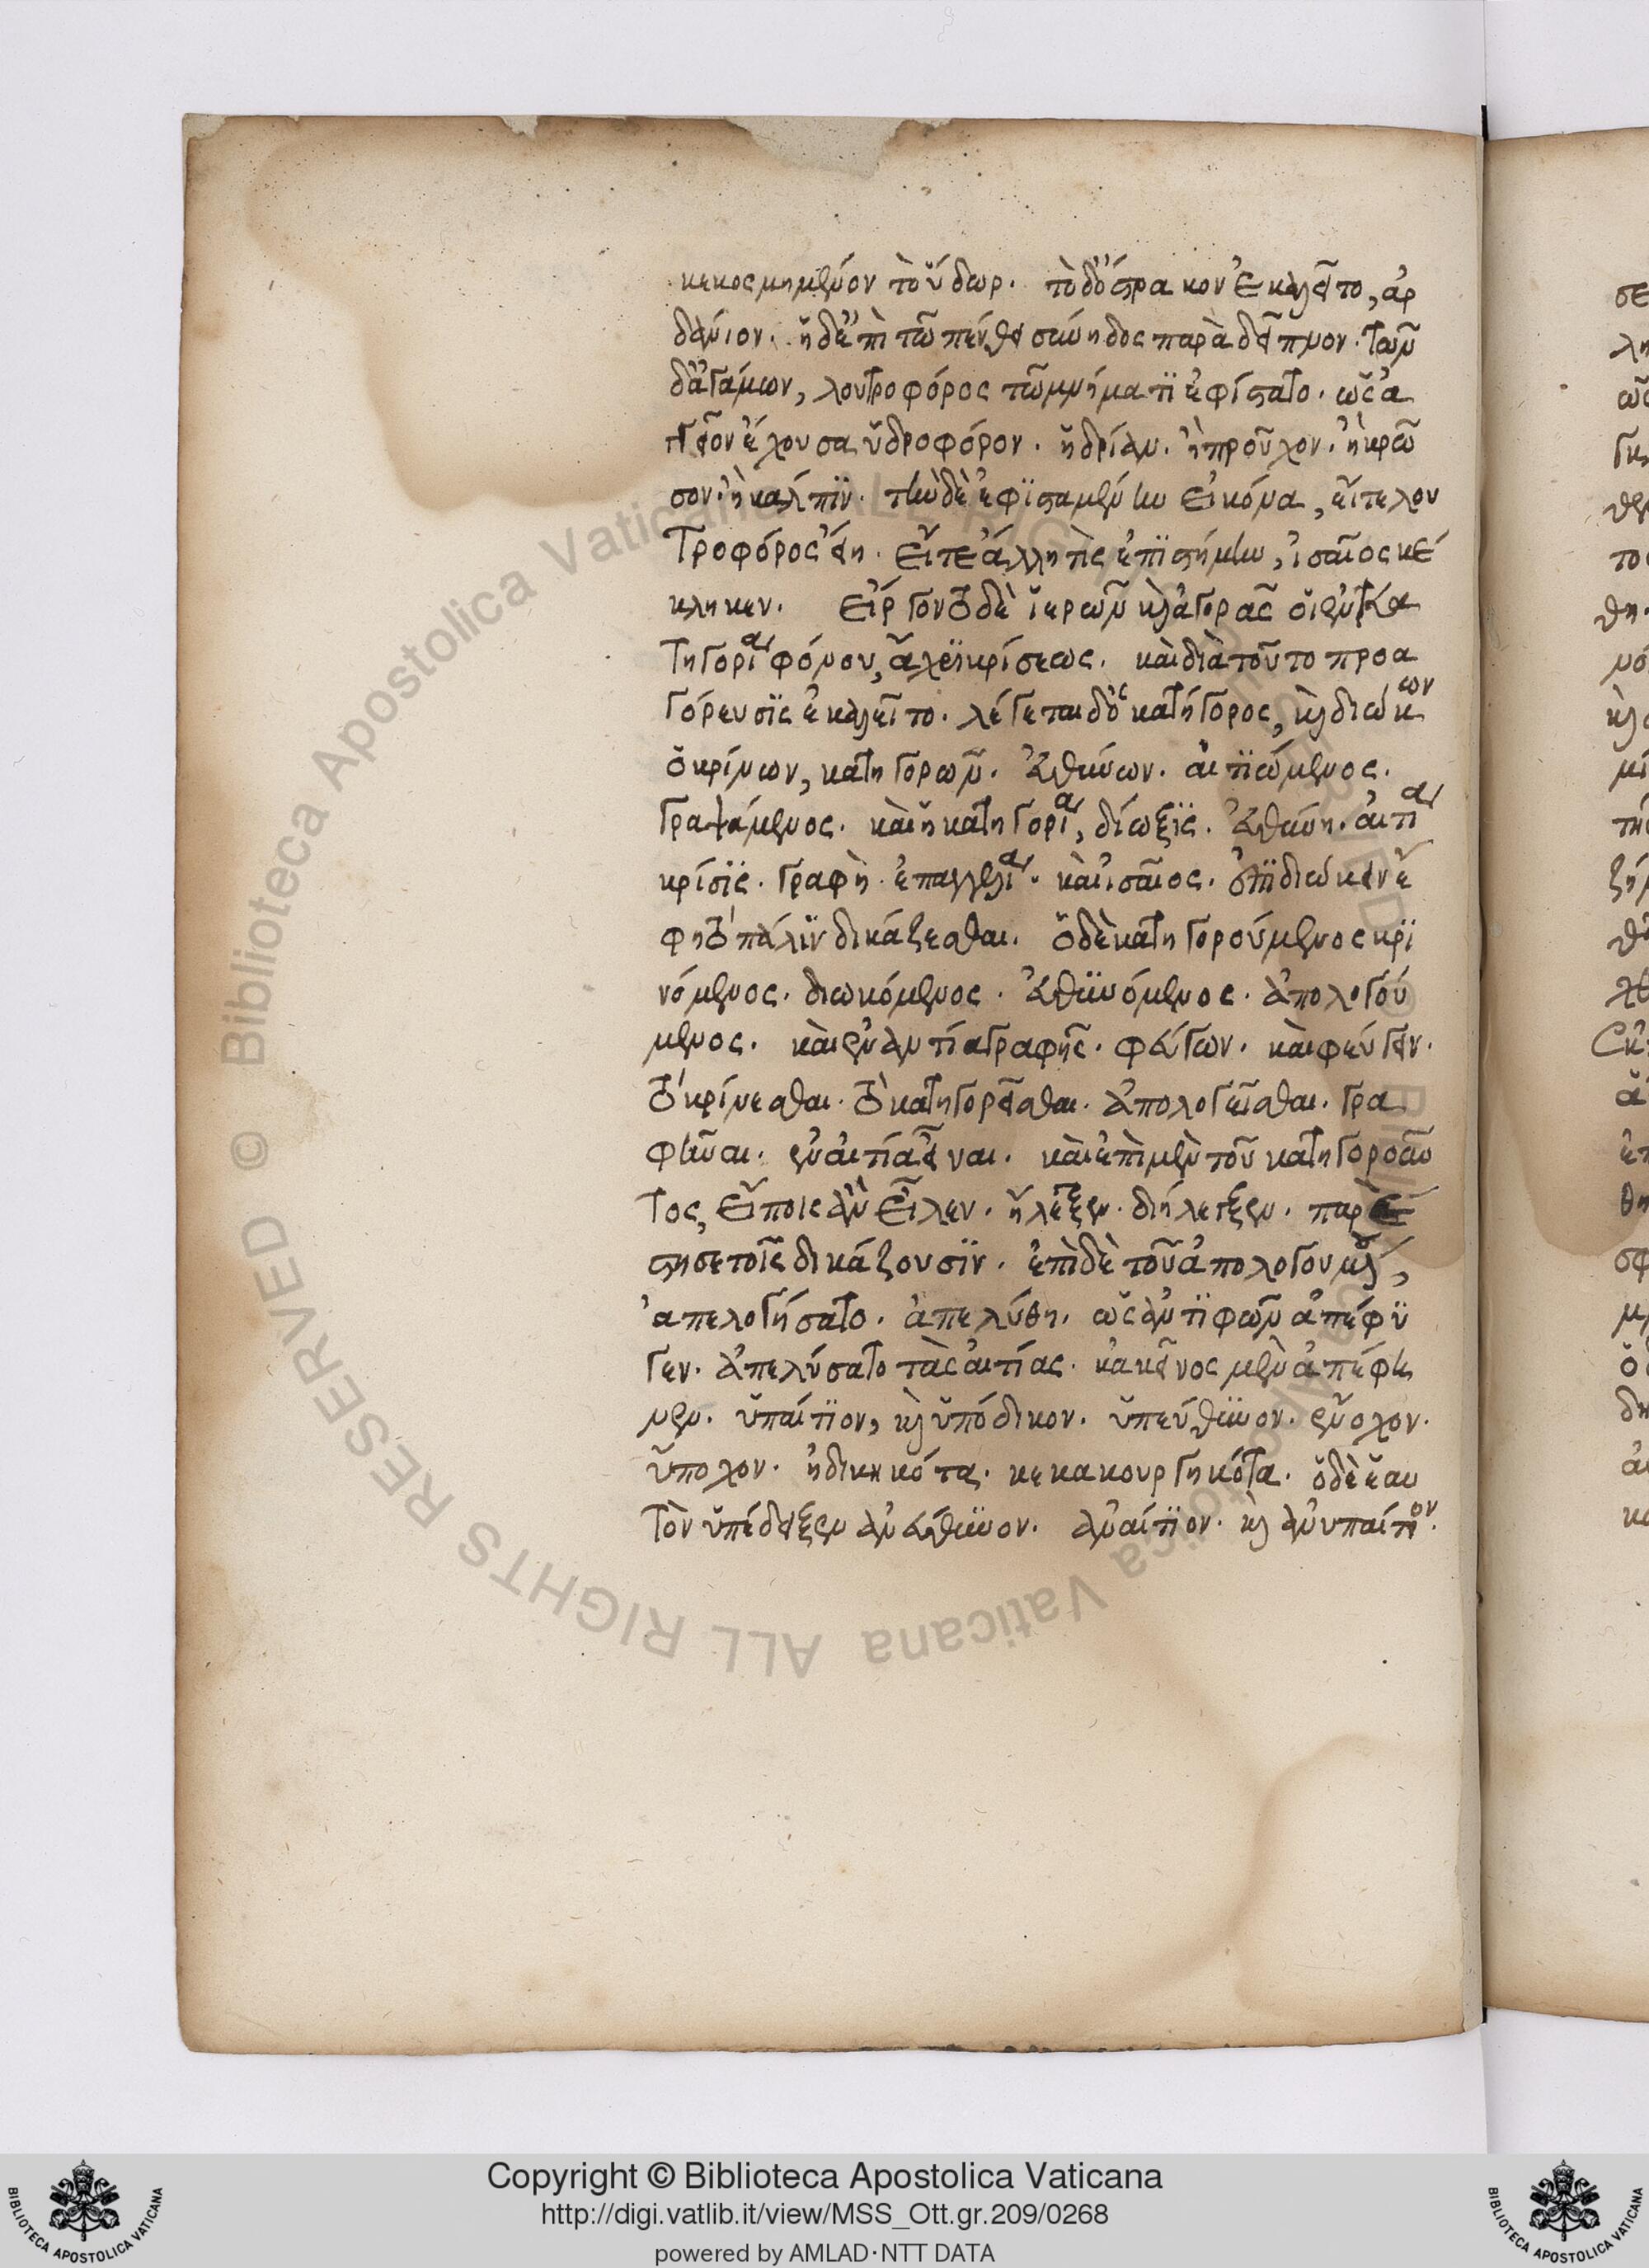 κεκοσμημένον τὸ ὕδωρ. τὸ δὀστρακον ἐκαλεῖτο, ἀρ
δάνιον. ἡ δἐπὶ τῶ πένθει συνηδος παρὰ δεῖπνον. τῶν
δἀγάμων, λουτροφόρος τῶ μνήματι ἐφίστατο. ὡς ἀ
γγεῖον ἔχουσα ὑδροφόρον. ἡδρίαν. ἢ πρόυχον. ἢ κρωσ
σον. ἢ κάλπιν. τὴν δὲ ἐφϊσταμένην εἰκόνα, εἴτε λου
τροφόρος ἔη. εἴτε ἄλλη τὶς ἐπϊστήμην, ἰσαῖος κέ
κληκεν. εἴργοντο δὲ ἱερῶν καὶ ἀγορᾶς οἱ ἐν κα
τηγορία φόνου, ἄχρϊ κρίσεως. καὶ διὰ τοῦτο προα
γόρευσϊς ἐκαλεῖτο. λέγεται δὁ κατήγορος, καὶ διώκων
ὁ κρίνων, κατηγορῶν. εὐθύνων. αἰτϊώμενος.
γραψάμενος. καὶ ἡ κατηγορία, δίωξϊς. εὐθύνη. αἰτία
κρίσϊς. γραφὴ. ἐπαγγελία. καὶ ἰσαῖος. ὅτϊ διώκειν ἔ
φη τὸ πάλϊν δικάζεσθαι. ὁ δὲ κατηγορούμενος κρϊ
νόμενος. διωκόμενος. εὐθϋνόμενος. ἀπολογού
μενος. καὶ ἐναντία γραφῆς. φεύγων. καὶ φεύγειν.
τὸ κρίνεσθαι. τὸ κατηγορεῖσθαι. ἀπολογεῖσθαι. γρα
φῆναι. ἐν αἰτία εἶναι. καὶ ἐπὶ μὲν τοῦ κατηγοροῦν
τος, εἴποις ἂν εἷλεν. ἤλεγξεν. διήλεγξεν. παρέ
στησε τοῖς δικάζουσϊν. ἐπὶ δὲ τοῦ ἀπολογουμένου,
ἀπελογήσατο. ἀπελύθη. ὡς ἀντϊφῶν ἀπέφϋ
γεν. ἀπελύσατο τὰς αἰτίας. κακεῖνος μὲν ἀπέφη
νεν. ὑπαίτϊον, καὶ ὑπόδικον. ὑπεύθϋνον. ἔνοχον.
ὕποχον. ἠδικηκότα. κεκακουργηκότα. ὁ δὲ ἑαυ
τὸν ὑπέδειξεν ἀνεύθϋνον. ἀναίτϊον. καὶ ἀνυπαίτιον.
Copyright © Biblioteca Apostolica Vaticana
http://digi.vatlib.it/view/MSS_Ott.gr.209/0268
powered by AMLAD·NTT DATA
BIBLIOTECA APOSTOLICA VATICANA
BIBLIOTECA APOSTOLICA VATICANA
© Biblioteca Apostolica Vaticana ALL RIGHTS RESERVED